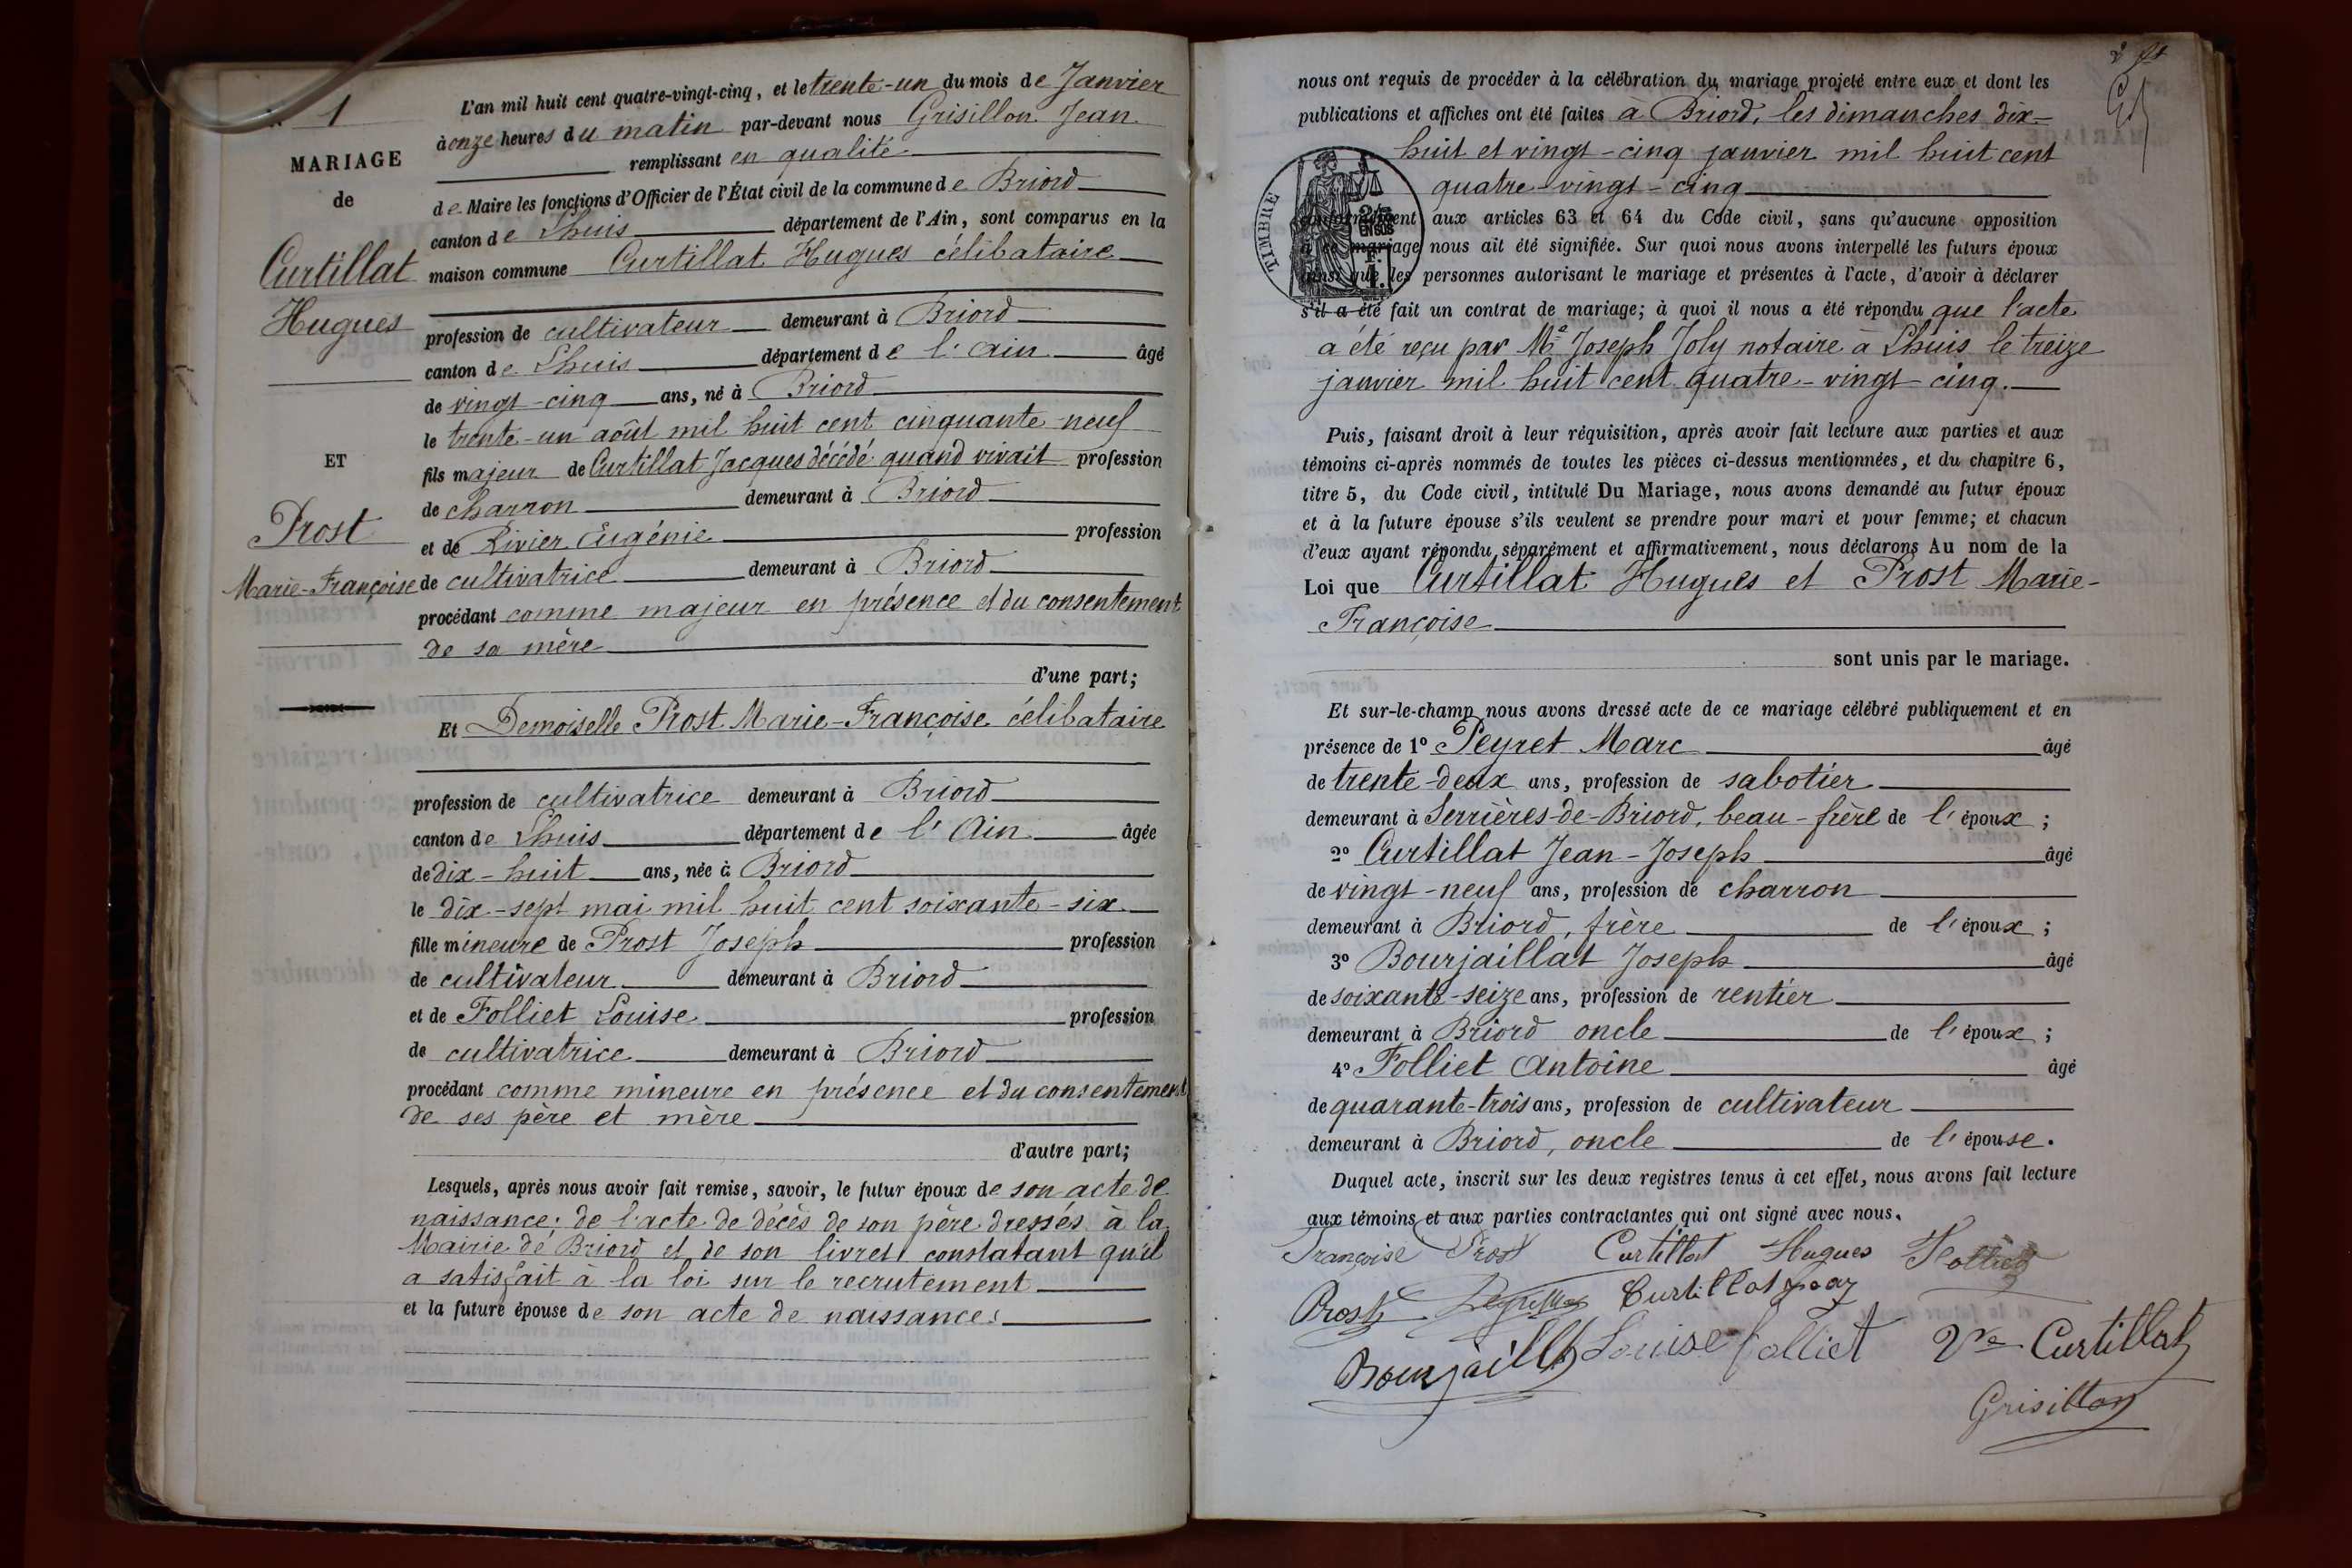 N° 1
MARIAGE
de
Curtillat
Hugues
ET
Prost
Marie-Françoise
L'an mil huit cent quatre-vingt-cinq, et le trente-un du mois de Janvier
à onze heures du matin par-devant nous Grisillon Jean
remplissant en qualité
de Maire les fonctions d'Officier de l'État civil de la commune de Briord
canton de Lhuis département de l'Ain, sont comparus en la
maison commune Curtillat Hugues célibataire
profession de cultivateur demeurant à Briord
canton de Lhuis département de l'Ain âgé
de vingt-cinq ans, né à Briord
le trente-un août mil huit cent cinquante-neuf
fils majeur de Curtillat Jacques décédé quand vivait profession
de charron demeurant à Briord
et de Rivier Eugénie profession
de cultivatrice demeurant à Briord
procédant comme majeur en présence et du consentement
de sa mère
d'une part;
Et Demoiselle Prost Marie-Françoise célibataire
profession de cultivatrice demeurant à Briord
canton de Lhuis département de l'Ain âgée
de dix-huit ans, née à Briord
le dix-sept mai mil huit cent soixante-six
fille mineure de Prost Joseph profession
de cultivateur demeurant à Briord
et de Folliet Louise profession
de cultivatrice demeurant à Briord
procédant comme mineure en présence et du consentement
de ses père et mère
d'autre part;
Lesquels, après nous avoir fait remise, savoir, le futur époux de son acte de
naissance; de l'acte de décès de son père dressés à la
Mairie de Briord et de son livret constatant qu'il
a satisfait à la loi sur le recrutement
et la future épouse de son acte de naissance.
nous ont requis de procéder à la célébration du mariage projeté entre eux et dont les
publications et affiches ont été faites à Briord, les dimanches dix-
huit et vingt-cinq janvier mil huit cent
quatre-vingt-cinq
TIMBRE
conformément aux articles 63 et 64 du Code civil, sans qu'aucune opposition
à ce mariage nous ait été signifiée. Sur quoi nous avons interpellé les futurs époux
ainsi que les personnes autorisant le mariage et présentes à l'acte, d'avoir à déclarer
s'il a été fait un contrat de mariage; à quoi il nous a été répondu que l'acte
a été reçu par Me Joseph Joly notaire à Lhuis le treize
janvier mil huit cent quatre-vingt-cinq.
Puis, faisant droit à leur réquisition, après avoir fait lecture aux parties et aux
témoins ci-après nommés de toutes les pièces ci-dessus mentionnées, et du chapitre 6,
titre 5, du Code civil, intitulé Du Mariage, nous avons demandé au futur époux
et à la future épouse s'ils veulent se prendre pour mari et pour femme; et chacun
d'eux ayant répondu séparément et affirmativement, nous déclarons Au nom de la
Loi que Curtillat Hugues et Prost Marie-
Françoise
sont unis par le mariage.
Et sur-le-champ nous avons dressé acte de ce mariage célébré publiquement et en
présence de 1° Peyret Marc âgé
de trente-deux ans, profession de sabotier
demeurant à Serrières-de-Briord, beau-frère de l'époux;
2° Curtillat Jean-Joseph âgé
de vingt-neuf ans, profession de charron
demeurant à Briord, frère de l'époux;
3° Bourjaillat Joseph âgé
de soixante-seize ans, profession de rentier
demeurant à Briord oncle de l'époux;
4° Folliet Antoine âgé
de quarante-trois ans, profession de cultivateur
demeurant à Briord, oncle de l'épouse.
Duquel acte, inscrit sur les deux registres tenus à cet effet, nous avons fait lecture
aux témoins et aux parties contractantes qui ont signé avec nous.
Françoise Prost Curtillat Hugues Folliet
Prost Curtillat
Bourjaillat Louise Folliet Ve Curtillat
Grisillon